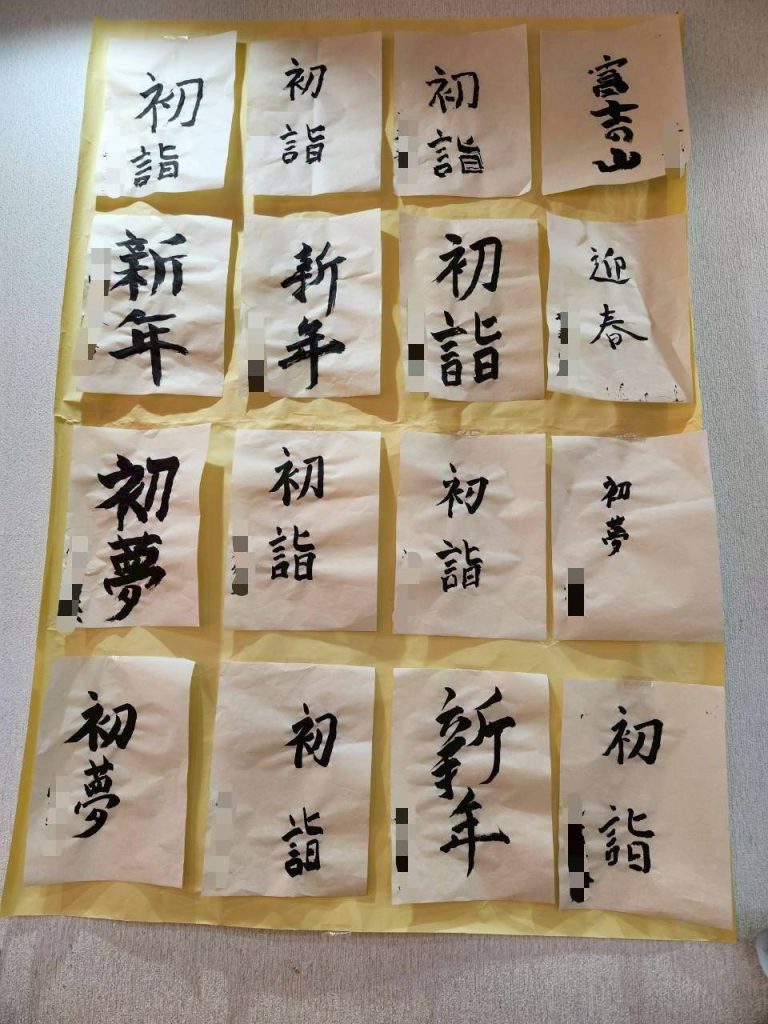 初詣
初詣
初詣
富士の山
新年
新年
初詣
迎春
初夢
初詣
初詣
初夢
初夢
初詣
新年
初詣